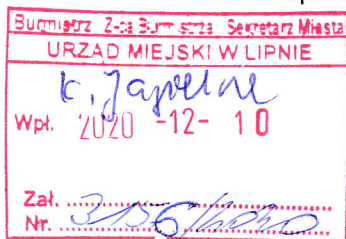 Burmistrz Z-ca Burmistrza Sekretarz Miasta
URZĄD MIEJSKI W LIPNIE
K.
Wpł. 2020 -12- 10
Zał.
Nr.